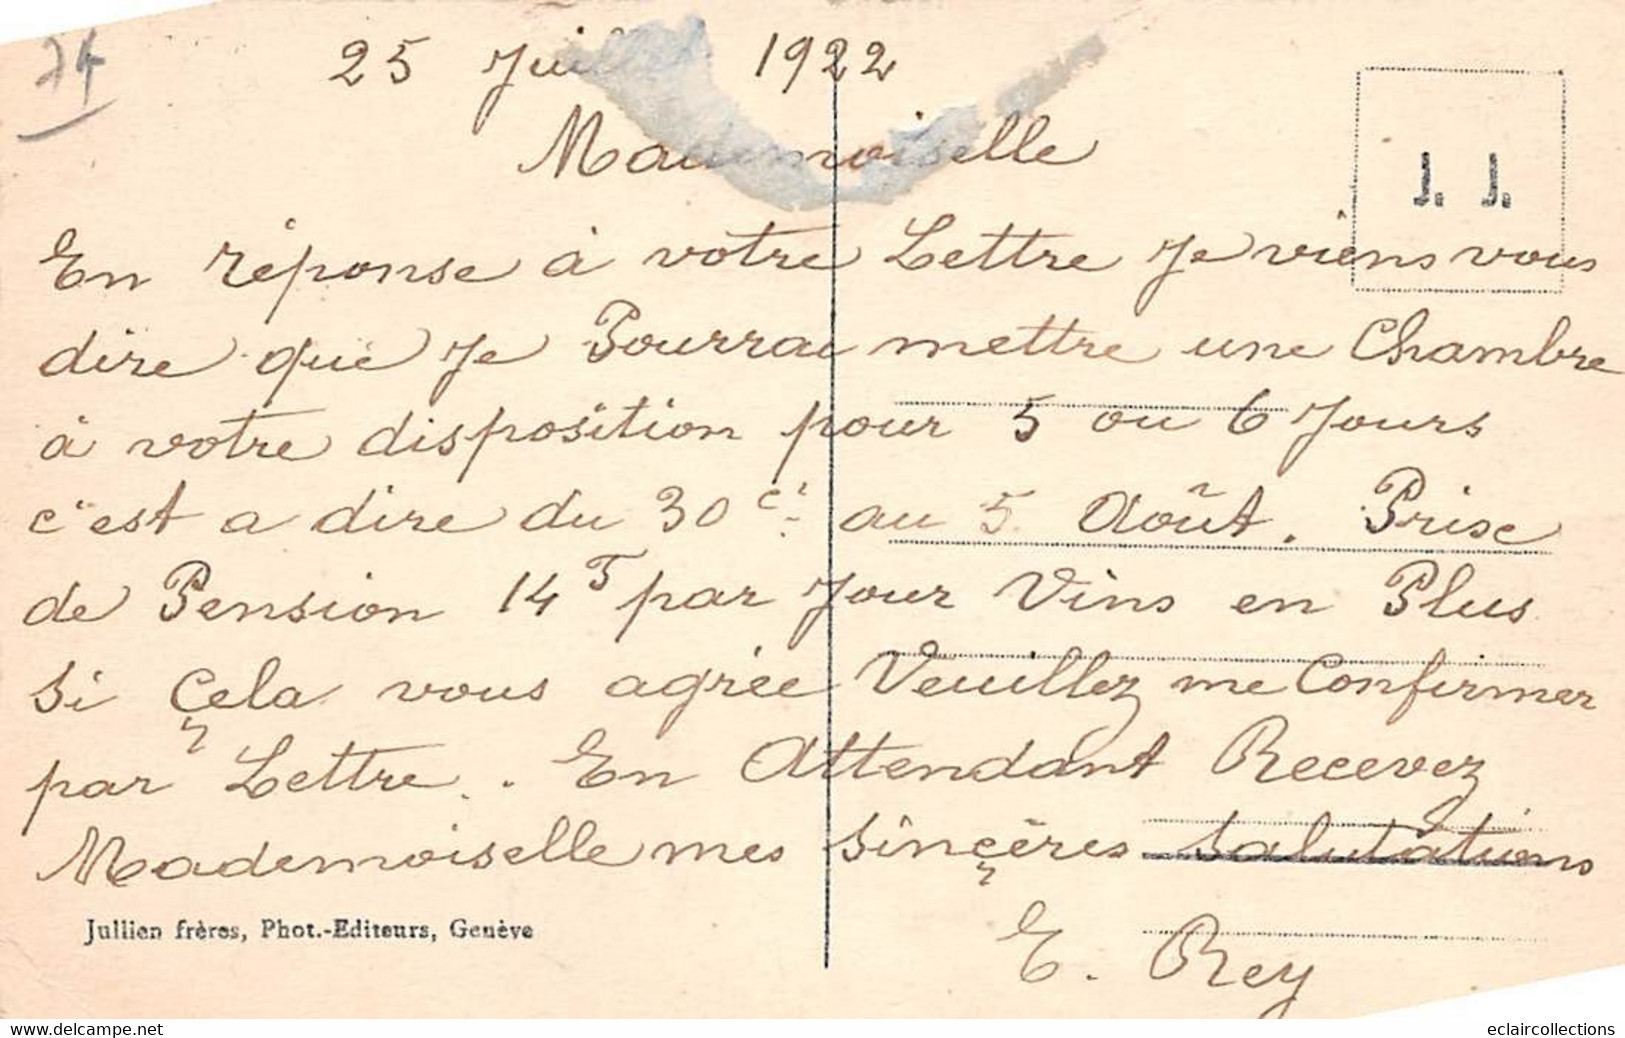 74
25 Juillet 1922
Mademoiselle
J. J.
En réponse à votre Lettre Je viens vous
dire que Je Pourrai mettre une Chambre
à votre disposition pour 5 ou 6 Jours
c'est a dire du 30 ct au 5 Août. Prise
de Pension 14F par Jour Vins en Plus
Si Çela vous agrée Veuillez me Confirmer
par Lettre. En Attendant Recevez
Mademoiselle mes Sinçères Salutations
Jullien frères, Phot.-Editeurs, Genève
E. Rey
eclaircollections